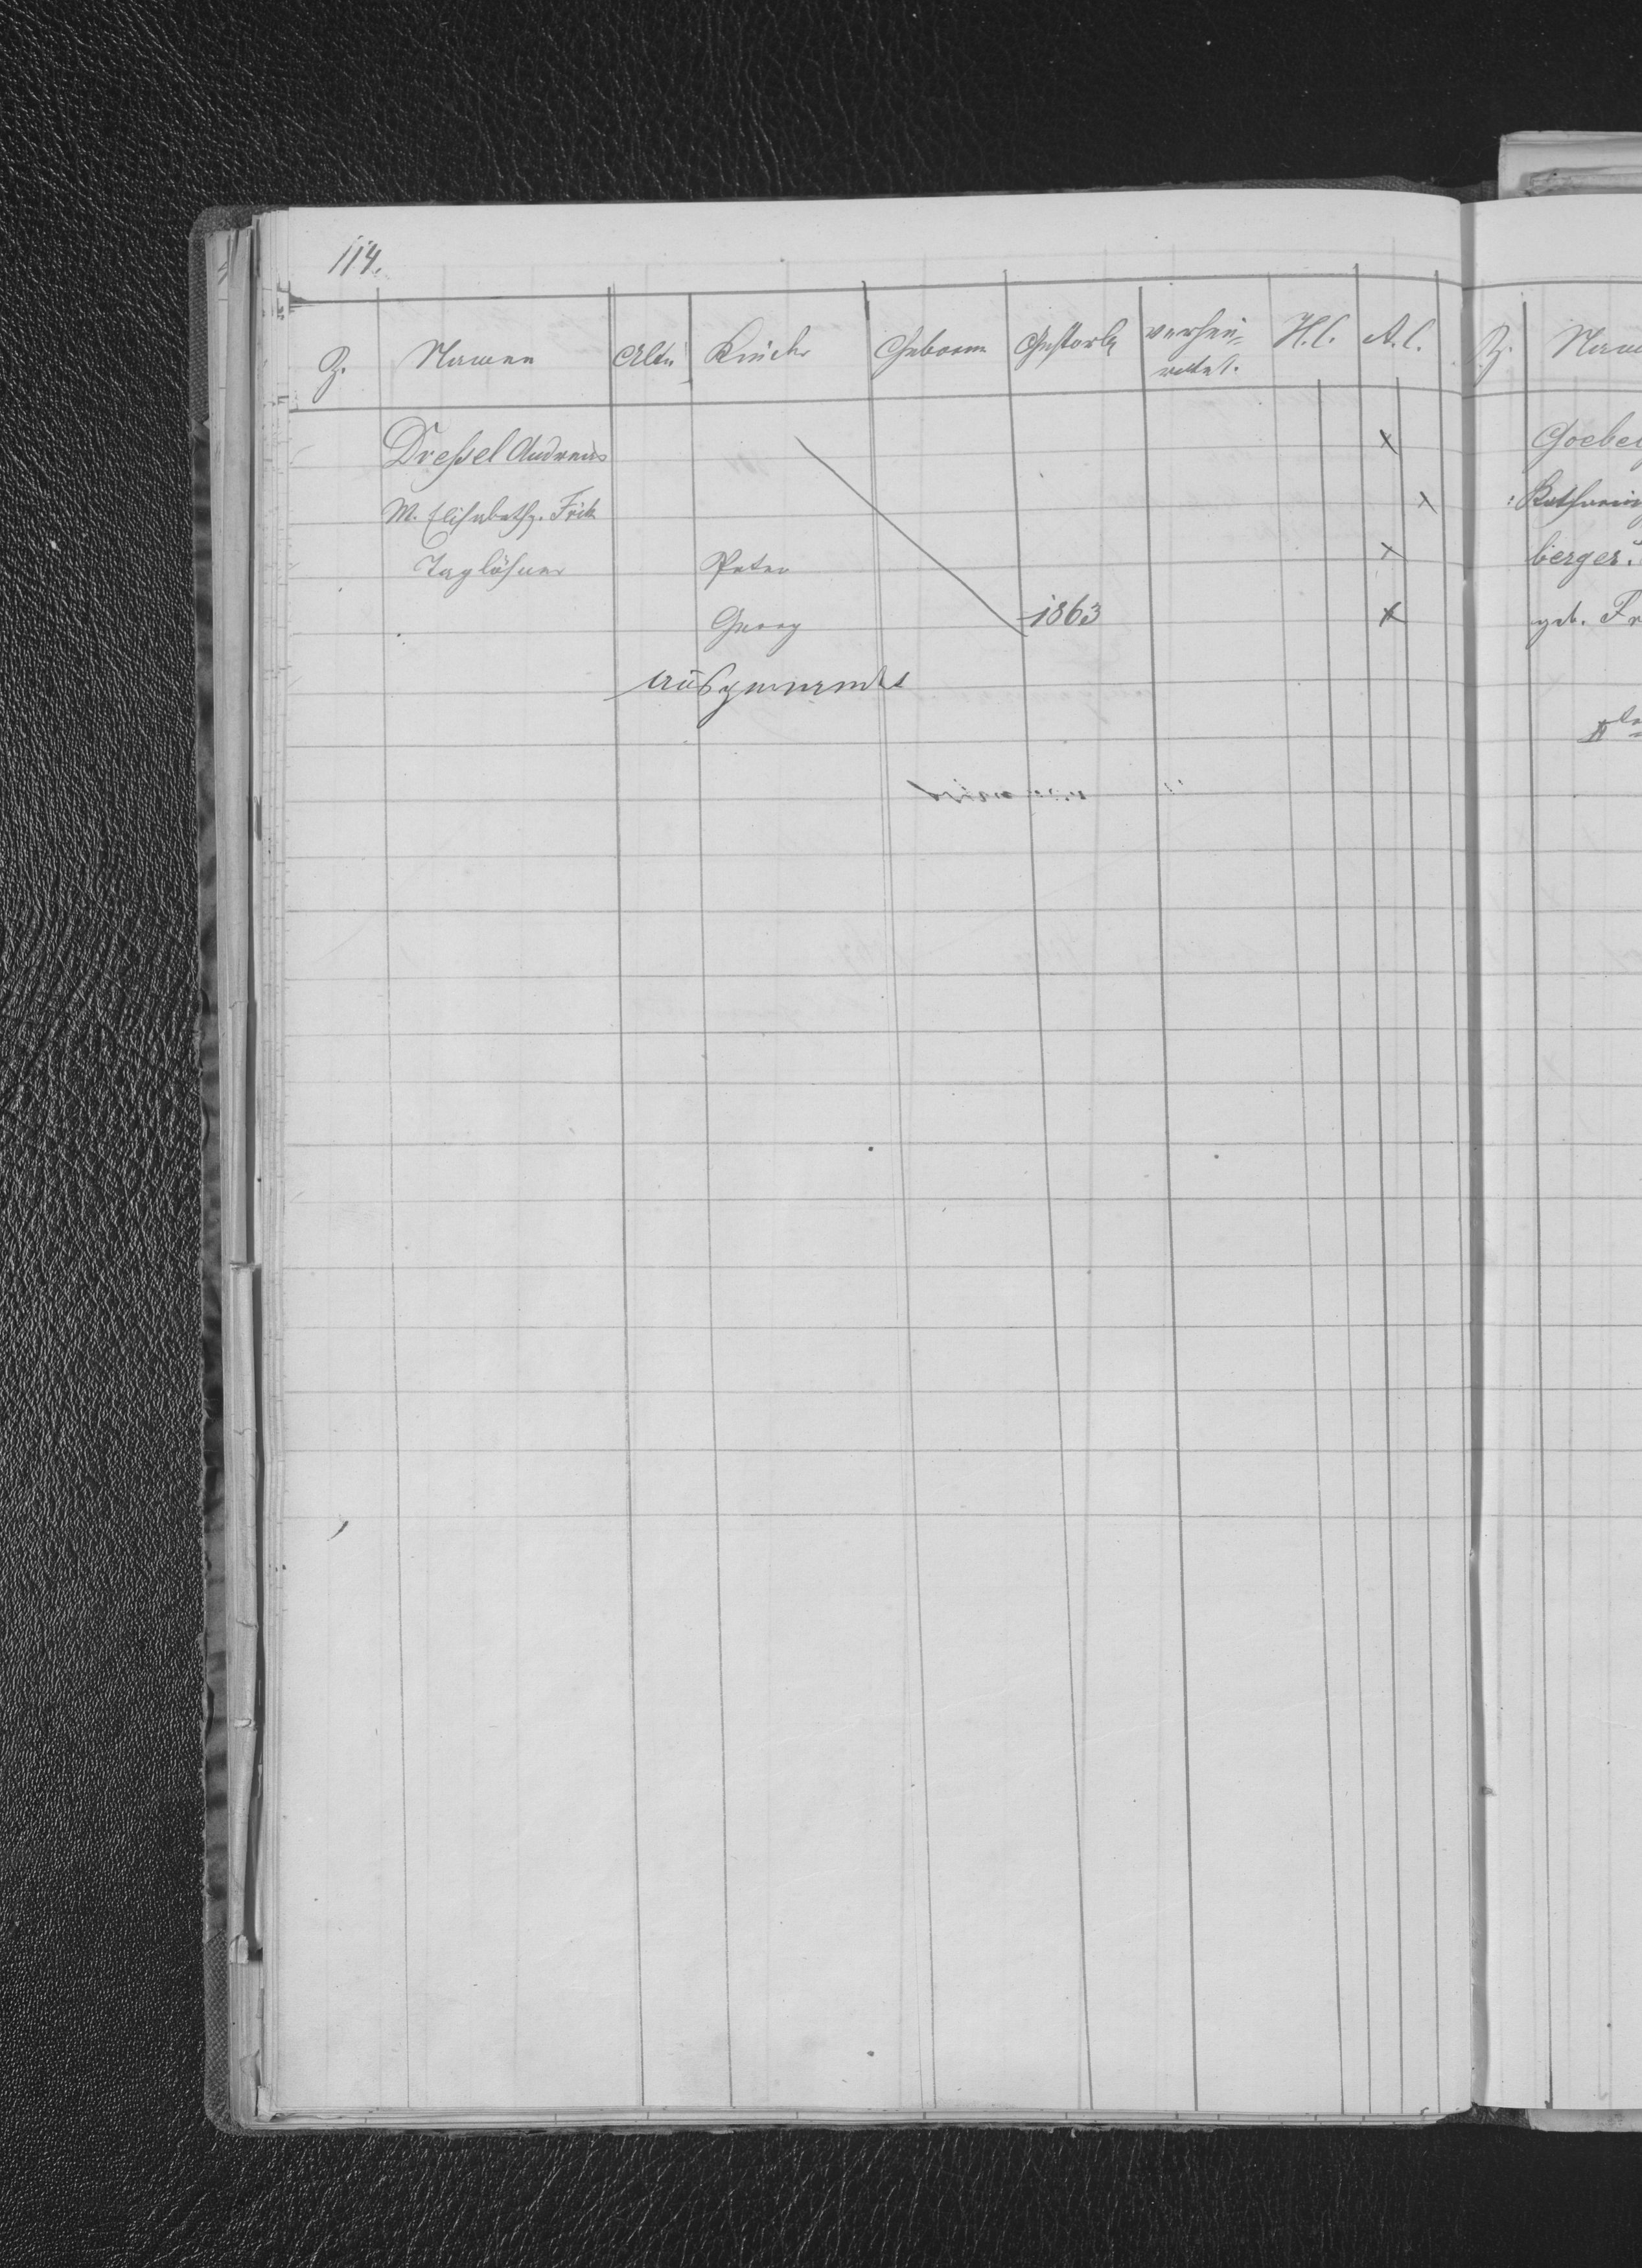 114.
Z. Namen Alter Kinder Geboren Gestorben verhei-
rathet.
H.C. A.C.
Z.
Dreßel Andreas x
M. Elisabetha g. Frik x
Taglöhner Peter x
Georg 1863 x
Ausgewandert
Goebel
berger.
geb. Fr